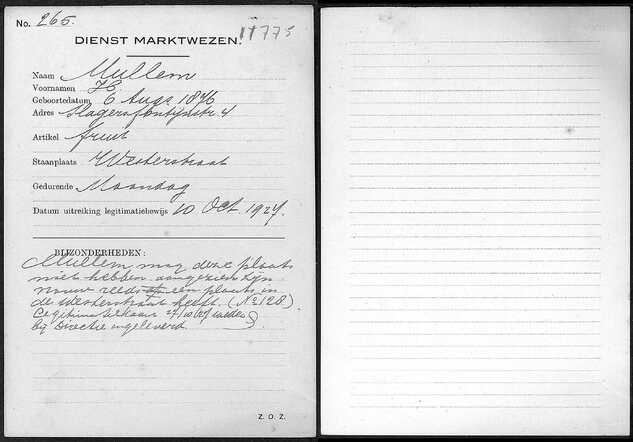 No. 265.
11775
DIENST MARKTWEZEN.
Naam Mullem
Voornamen H
Geboortedatum 6 Aug 1876
Adres Slagersfontijnstr 4
Artikel fruit
Staanplaats Westerstraat
Gedurende Maandag
Datum uitreiking legitimatiebewijs 10 Oct. 1927.
BIJZONDERHEDEN:
Mullem mag deze plaats
niet hebben aangezien zijn
vrouw reeds een plaats in
de Westerstraat heeft. (No 128)
Legitimatiekaart 27/10/27
bij Directie ingeleverd
Z. O. Z.